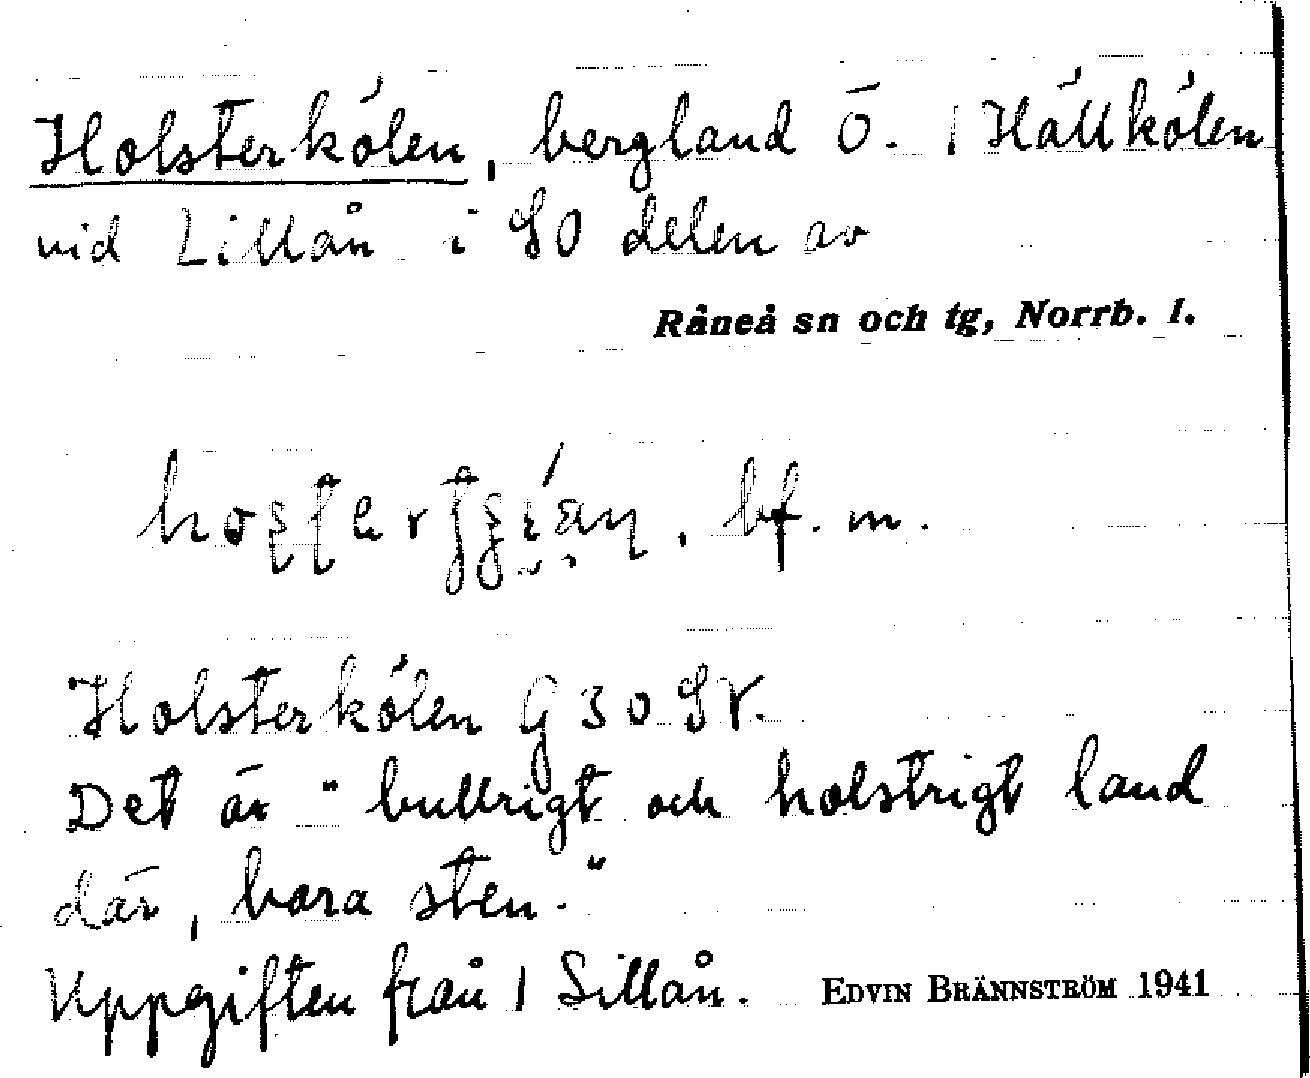 Holsterkölen, bergland Ö. / Hällkölen
vid Lillån i SO delen av
Råneå sn och tg, Norrb. l.
bf. m.
Holsterkölen G 30 SV.
Det är "bullrigt och holstrigt land
där, bara sten."
Uppgiften från / Sillån. EDVIN BRÄNNSTRÖM 1941